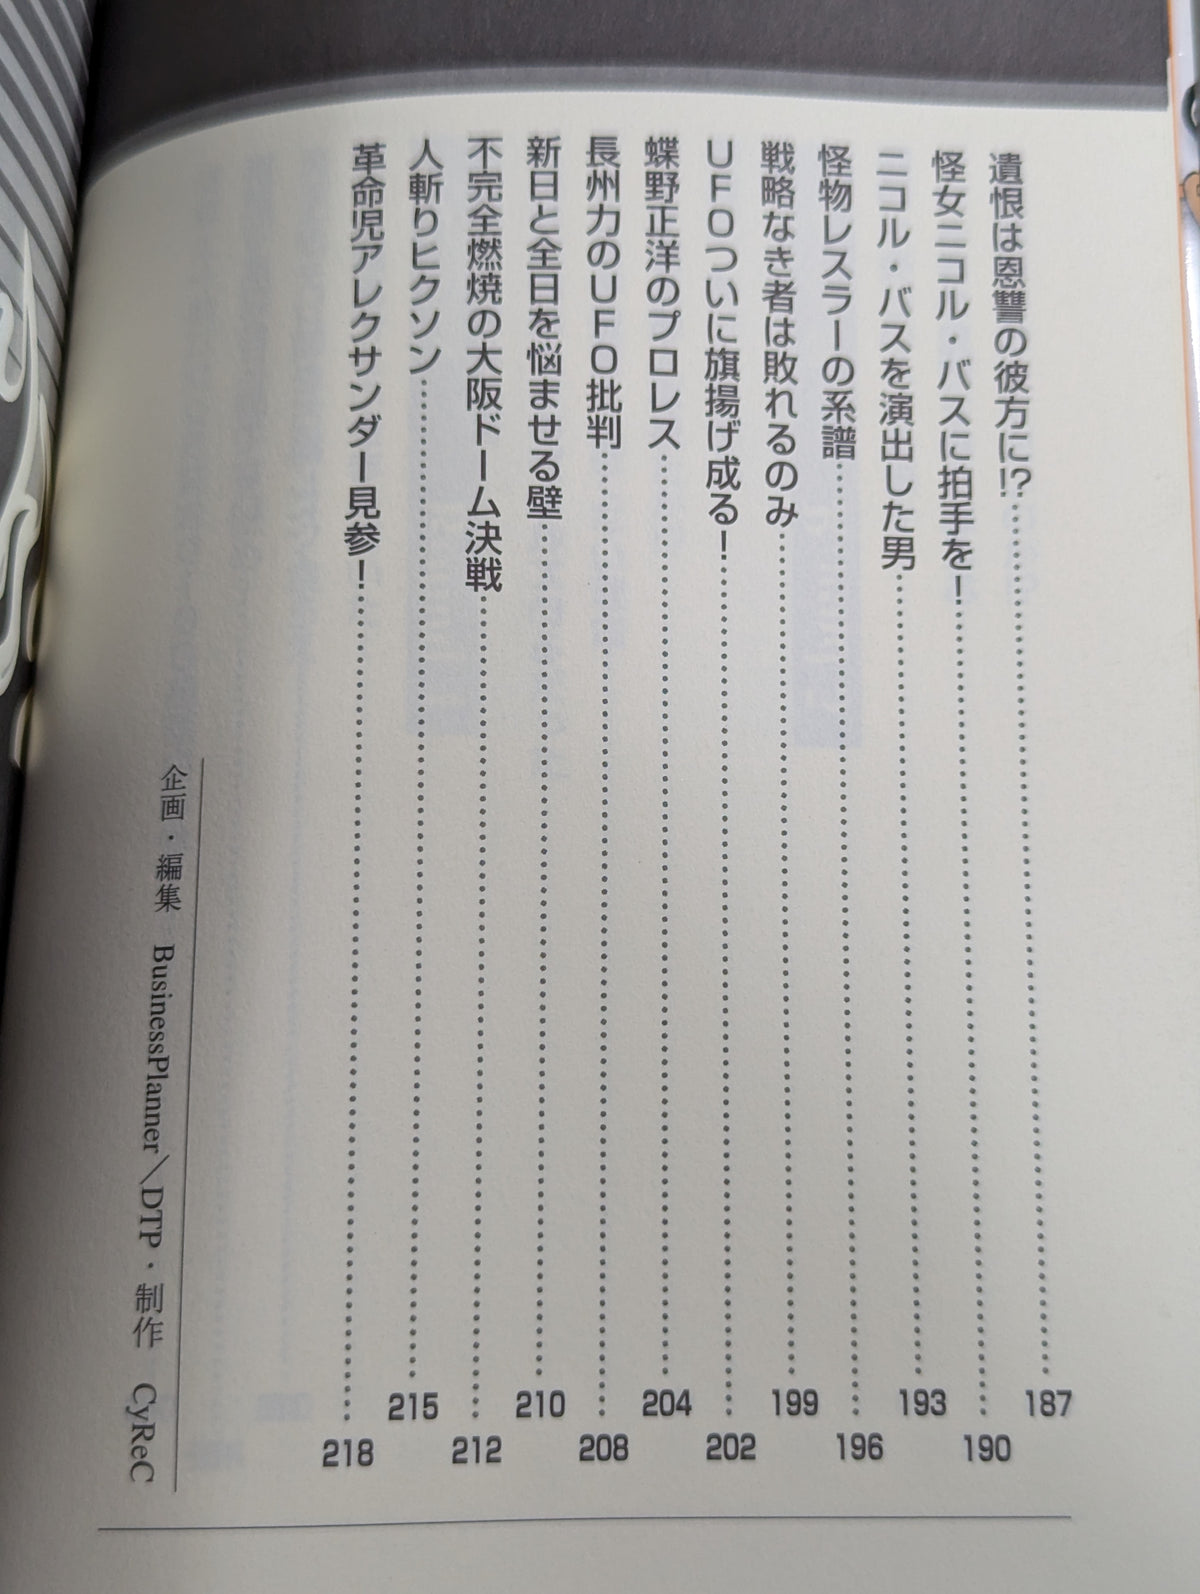 遺恨は恩讐の彼方に!?……187
怪女ニコル・バスに拍手を！……190
ニコル・バスを演出した男……193
怪物レスラーの系譜……196
戦略なき者は敗れるのみ……199
ＵＦＯついに旗揚げ成る！……202
蝶野正洋のプロレス……204
長州力のＵＦＯ批判……208
新日と全日を悩ませる壁……210
不完全燃焼の大阪ドーム決戦……212
人斬りヒクソン……215
革命児アレクサンダー見参！……218
企画・編集　BusinessPlanner／DTP・制作　CyReC